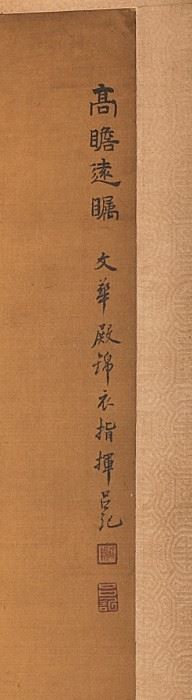 高瞻遠矚 文華殿錦衣指揮呂紀